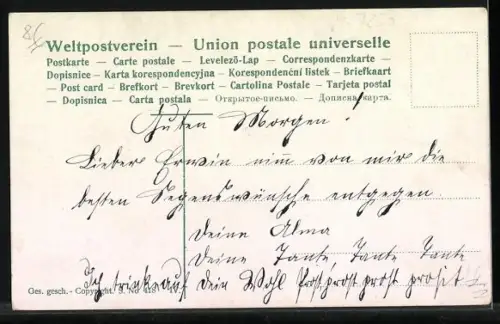 Weltpostverein — Union postale universelle
Postkarte — Carte postale — Levelező-Lap — Correspondenzkarte —
Dopisnice - Karta korespondencyjna - Korespondenční listek - Briefkaart
— Post card — Brefkort — Brevkort — Cartolina Postale — Tarjeta postal
— Dopisnica — Carta postala — Открытое-письмо. — Дописна карта.
Guten Morgen!
Lieber Erwin nimm von mir die
besten Segenswünsche entgegen.
Deine Alma
Deine Tante Tante Tante
Ich trink auf Dein Wohl prost prost prost prosit
Ges. gesch. - Copyright. S. No